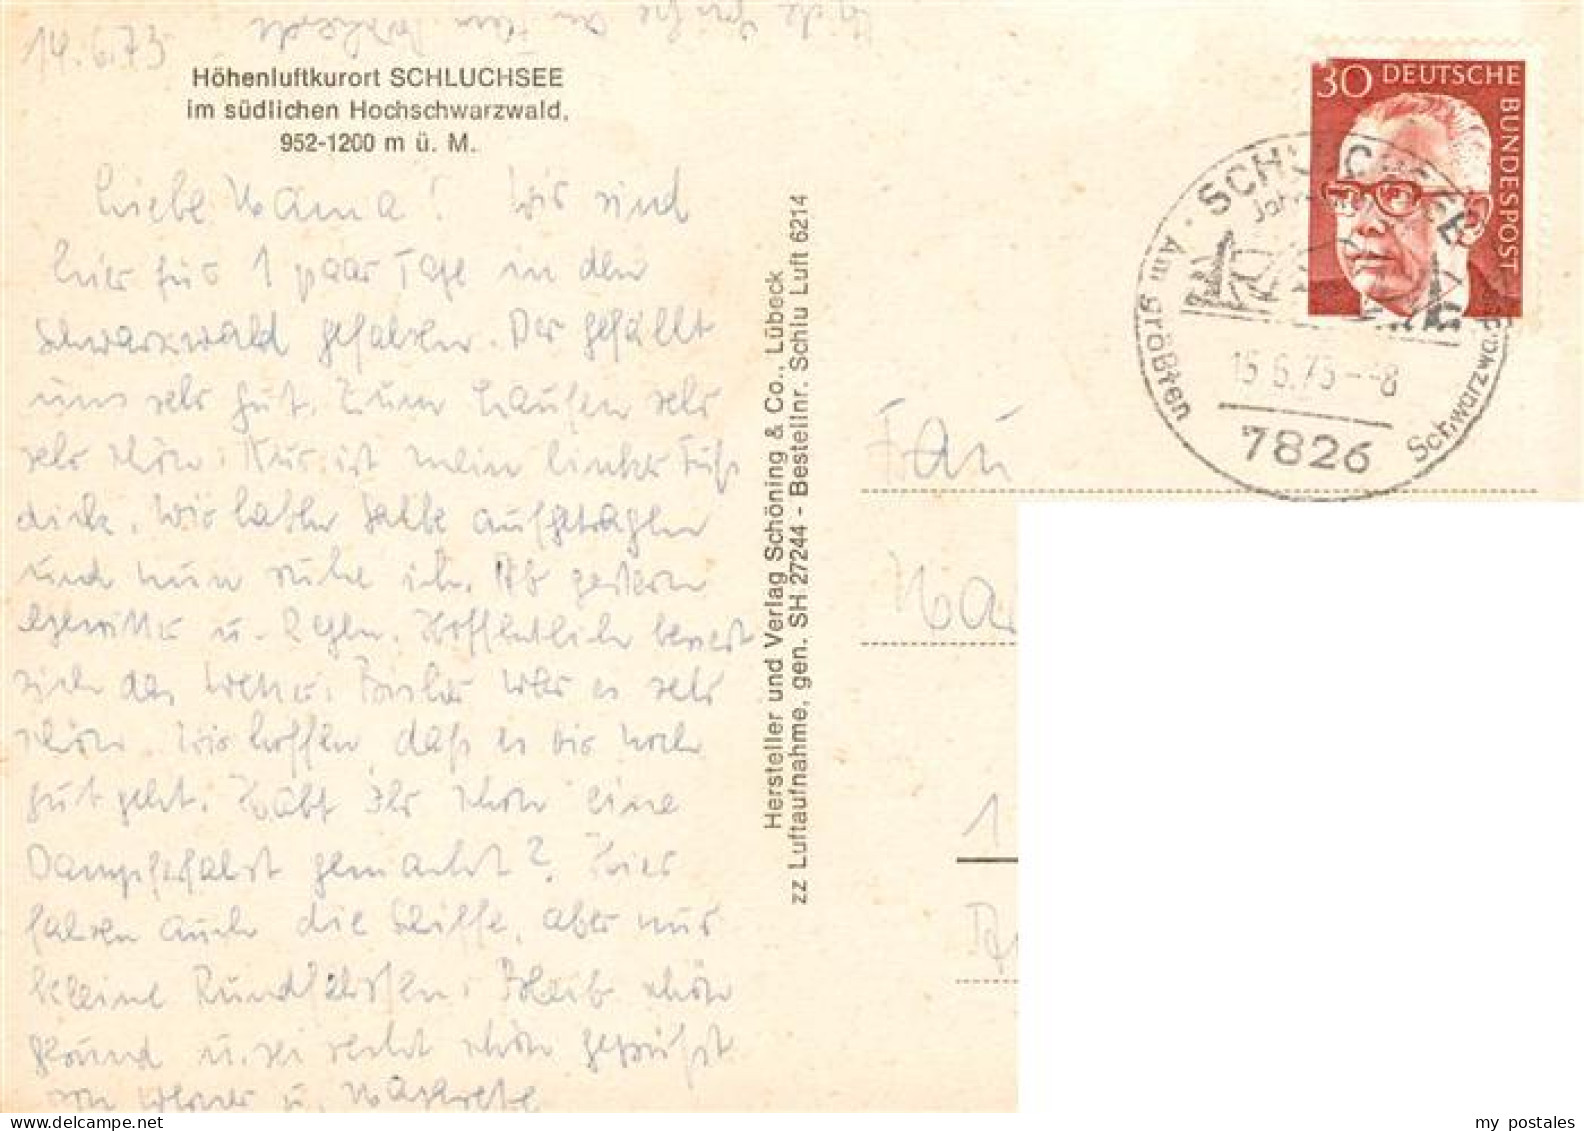 14.6.73
Höhenluftkurort SCHLUCHSEE
im südlichen Hochschwarzwald,
952-1200 m ü. M.
Liebe Mama! Wir sind
hier für 1 paar Tage in den
Schwarzwald gefahren. Der gefällt
uns sehr gut. Zum Laufen sehr
sehr schön. Nur ist mein linker Fuß
dick. Wir haben Salbe aufgetragen
und nun ruhe ich. Ab gestern
Gewitter u. Regen. Hoffentlich bessert
sich das Wetter. Bisher war es sehr
schön. Wir hoffen, daß es Dir noch
gut geht. Habt Ihr schon eine
Dampferfahrt gemacht? Hier
fahren auch die Schiffe, aber nur
kleine Rundfahrten. Bleib schön
gesund u. sei recht schön gegrüßt
von Werner u. Margarete
Hersteller und Verlag Schöning & Co., Lübeck
zz Luftaufnahme, gen. SH 27244 - Bestellnr. Schlu Luft 6214
30 DEUTSCHE
BUNDESPOST
SCHLUCHSEE
Am größten
Schwarzwa
15.6.73--8
7826
1
my postales